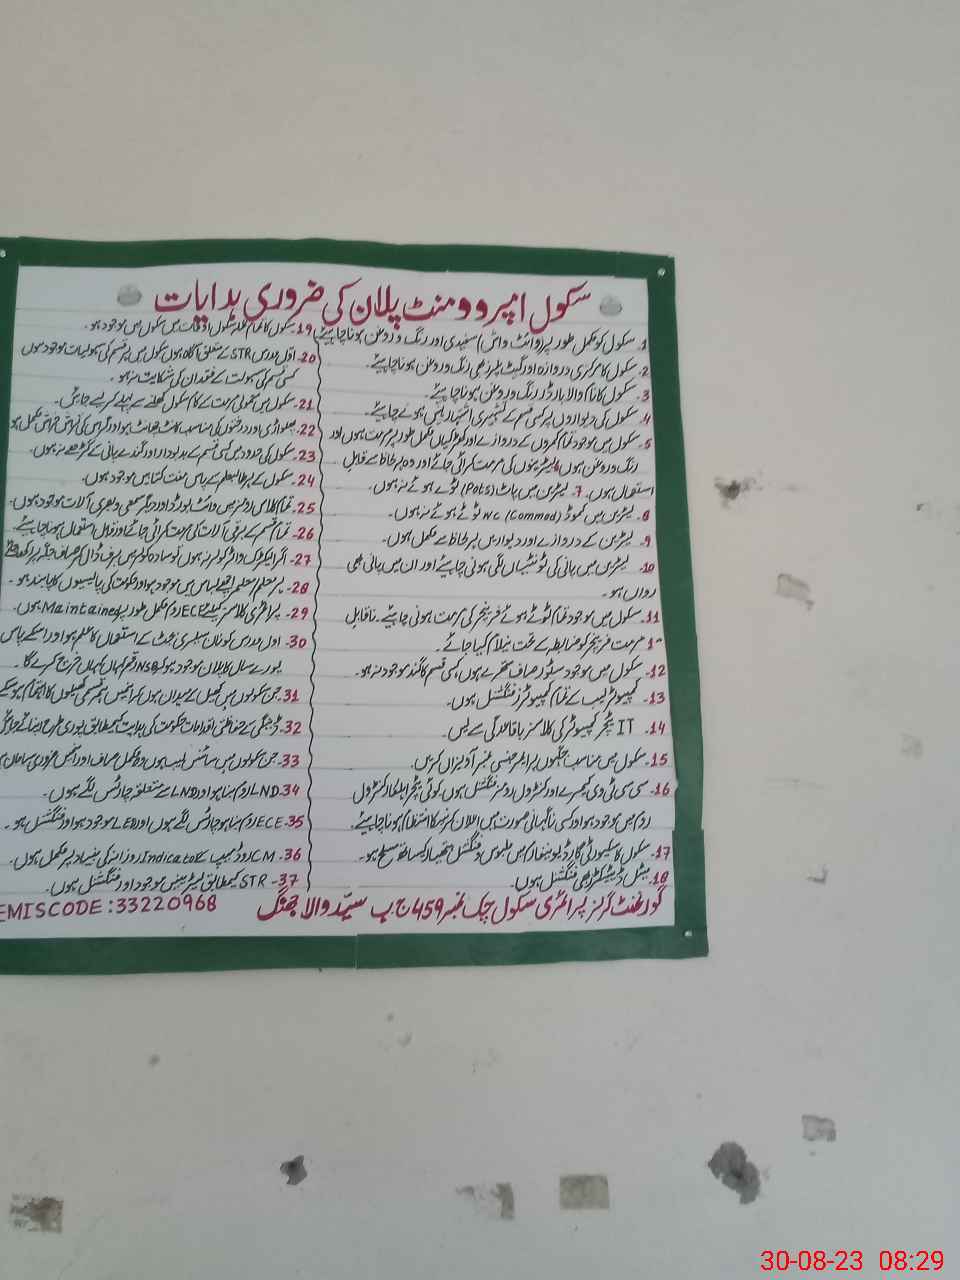 سکول امپروومنٹ پلان کی ضروری ہدایات
1. سکول کو مکمل طور پر (وائٹ واش) سفیدی اور رنگ و روغن ہونا چاہیئے۔
2. سکول کا مرکزی دروازہ اور گیٹ پلرز بھی رنگ و روغن ہونا چاہیئے۔
3. سکول کا نام والا بارڈر رنگ و روغن ہونا چاہیئے۔
4. سکول کی دیواروں پر کسی قسم کے تشہیری اشتہار نہیں ہونے چاہیئے۔
5. سکول میں موجود تمام کمروں کے دروازے اور کھڑکیاں مکمل طور پر مرمت ہوں اور
رنگ و روغن ہوں۔ 6 لیٹرینوں کی مرمت کرائی جائے اور وہ ہر لحاظ سے قابل
استعمال ہوں۔ 7. لیٹرین میں پاٹ (Pots) ٹوٹے ہوئے نہ ہوں۔
8. لیٹرین میں کموڈ WC (Commod) ٹوٹے ہوئے نہ ہوں۔
9. لیٹرین کے دروازے اور دیواریں ہر لحاظ سے مکمل ہوں۔
10. لیٹرین میں پانی کی ٹونٹیاں لگی ہونی چاہیئے اور ان میں پانی بھی
رواں ہو۔
11. سکول میں موجود تمام ٹوٹے ہوئے فرنیچر کی مرمت ہونی چاہیے۔ ناقابل
مرمت فرنیچر کو ضابطہ کے تحت نیلام کیا جائے۔
12. سکول میں موجود سٹور صاف ستھرے ہوں، کسی قسم کا گند موجود نہ ہو۔
13. کمپیوٹر لیب کے تمام کمپیوٹرز فنگشنل ہوں۔
14. IT ٹیچر کمپیوٹر کی کلاسز باقاعدگی سے لیں۔
15. سکول میں مناسب جگہوں پر ایمرجنسی نمبر آویزاں کریں۔
16. سی سی ٹی وی کیمرے اور کنٹرول رومز فنگشنل ہوں کوئی ٹیچر ایلکار کنٹرول
روم میں موجود ہو اور کسی ناگہانی صورت میں اعلان کرنے کا انتظام ہونا چاہیئے۔
17. سکول کا سیکیورٹی گارڈ یونیفارم میں ملبوس و فنگشنل ہتھیار کیساتھ مسلح ہو۔
18. میٹل ڈیٹیکٹر بھی فنگشنل ہوں۔
19. سکول کا تمام عملہ سکول اوقات میں سکول میں موجود ہو۔
20. اول مدرس STR کے متعلق آگاہ ہوں سکول میں ہر قسم کی سہولیات موجود ہوں
کسی قسم کی سہولت کے فقدان کی شکایت نہ ہو۔
21. سکول میں معمولی مرمت کے کام سکول کھلنے سے پہلے کر لیے جائیں۔
22. پھلواڑی اور درختوں کی مناسب کانٹ چھانٹ ہو اور گراسی کی تراش خراش مکمل ہو
23. سکول کی حدود میں کسی قسم کے بدبودار اور گندے پانی کے گڑھے نہ ہوں۔
24. سکول کے ہر طالبعلم کے پاس مفت کتابیں موجود ہوں۔
25. تمام کلاس رومز میں وائٹ بورڈ اور دیگر سمعی و بصری آلات موجود ہوں۔
26. تمام قسم کے برقی آلات کی مرمت کرائی جائے اور قابل استعمال ہونا چاہیئے
27. اگر الیکٹرک واٹر کولر نہ ہوں تو سادہ کولر میں برف ڈال کر صاف جگہ پر
28. ہر معلم/معلمہ اچھے لباس میں موجود ہو اور حکومت کی پالیسیوں کا پابند ہو۔
29. پرائمری کلاسز کیلئے ECE روم مکمل طور پر Maintained ہوں۔
30. اول مدرس کو نان سیلری بجٹ کے استعمال کا علم ہو اور اسکے پاس
پورے سال کا پلان موجود ہو کہ NSB رقم کہاں کہاں خرچ کرے گا۔
31. جن سکولوں میں کھیل کے میدان ہوں کرائیں ہر قسم کی کھیلوں کا اہتمام
32. ڈینگی سے حفاظتی اقدامات حکومت کی ہدایت کیمطابق پوری طرح اپنائے
33. جن سکولوں میں سائنس لیب ہوں وہ مکمل صاف اور اسمیں ضروری سامان
34. LND روم بنا ہو اور LND کے متعلقہ چارٹس لگے ہوں۔
35. ECE روم بنا ہو چارٹس لگے ہوں اور LED موجود ہو اور فنگشنل ہو۔
36. CM روڈ میپ کے Indicator روزانہ کی بنیاد پر مکمل ہوں۔
37. STR کیمطابق ٹیچرز موجود اور فنگشنل ہوں۔
گورنمنٹ گرلز پرائمری سکول چک نمبر 459 ج ب سیّد والا جھنگ EMISCODE:33220968
30-08-23 08:29